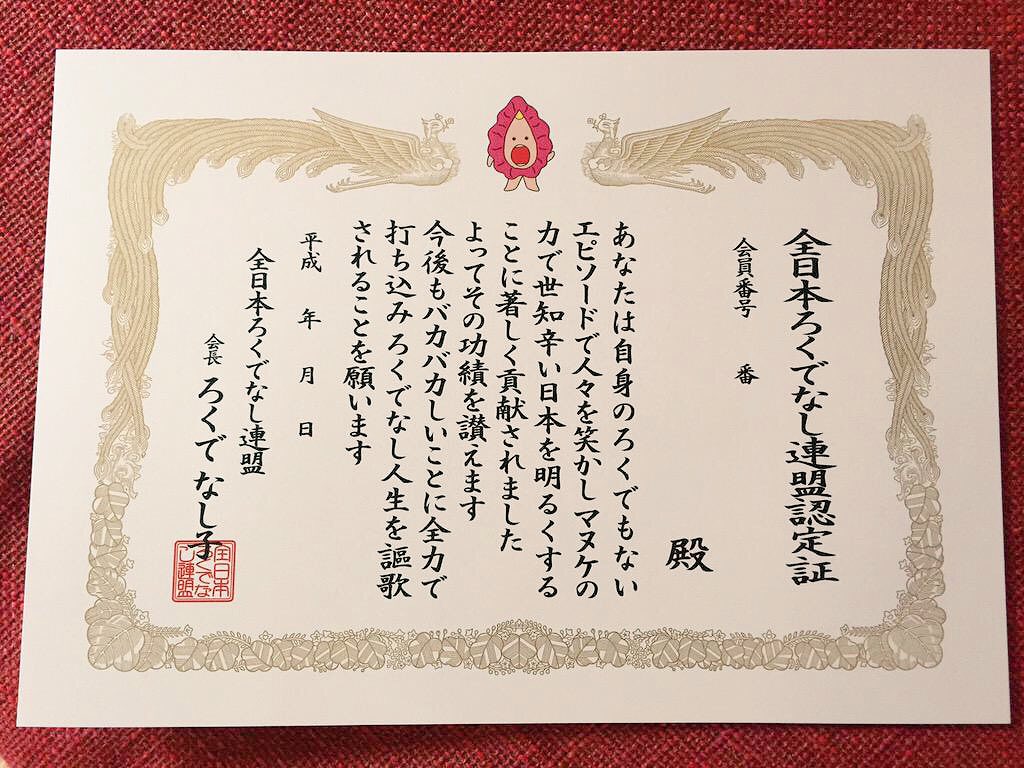 全日本ろくでなし連盟認定証
会員番号　　番
殿
あなたは自身のろくでもない
エピソードで人々を笑かしマヌケの
力で世知辛い日本を明るくする
ことに著しく貢献されました
よってその功績を讃えます
今後もバカバカしいことに全力で
打ち込みろくでなし人生を謳歌
されることを願います
平成　年　月　日
全日本ろくでなし連盟
会長 ろくでなし子
全日本
ろくでな
し連盟